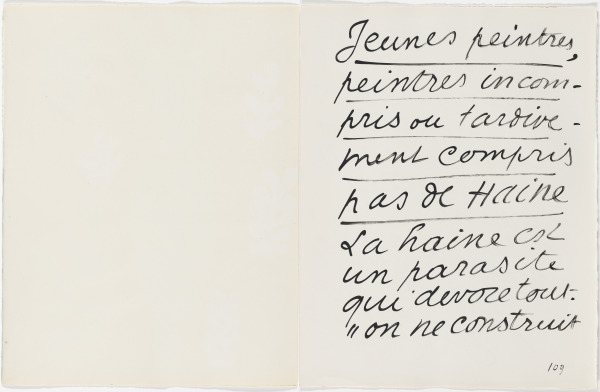 Jeunes peintres,
peintres incom-
pris ou tardive-
ment compris
pas de Haine
La haine est
un parasite
qui devore tout.
"on ne construit
109